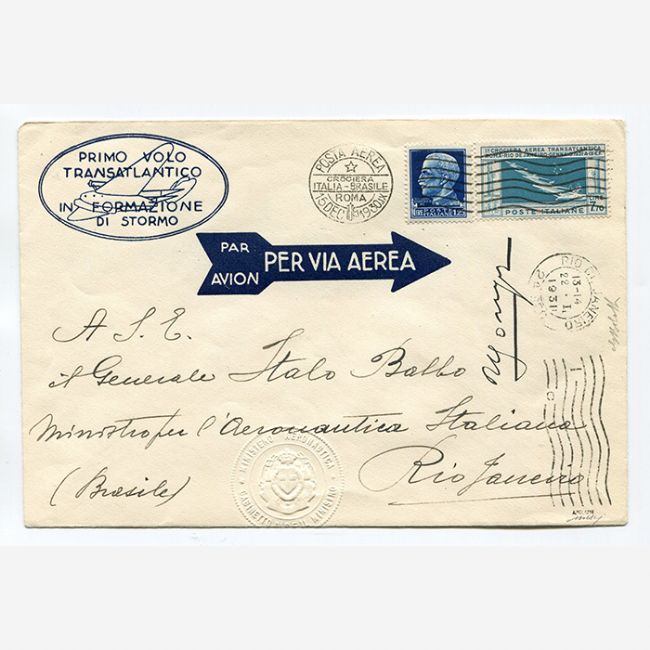 PRIMO VOLO
TRANSATLANTICO
IN FORMAZIONE
DI STORMO
POSTA AEREA
CROCIERA
ITALIA-BRASILE
ROMA
15 DEC 1930 IX
1ª CROCIERA AEREA TRANSATLANTICA
POSTE ITALIANE
7,70
PAR
AVION
PER VIA AEREA
RIO D. JANEIRO
13-14
22 . I.
1931
A S. E.
il Generale Italo Balbo
Ministro per l'Aeronautica Italiana
Rio Janeiro
(Brasile)
MINISTERO AERONAUTICA
GABINETTO
MINISTRO